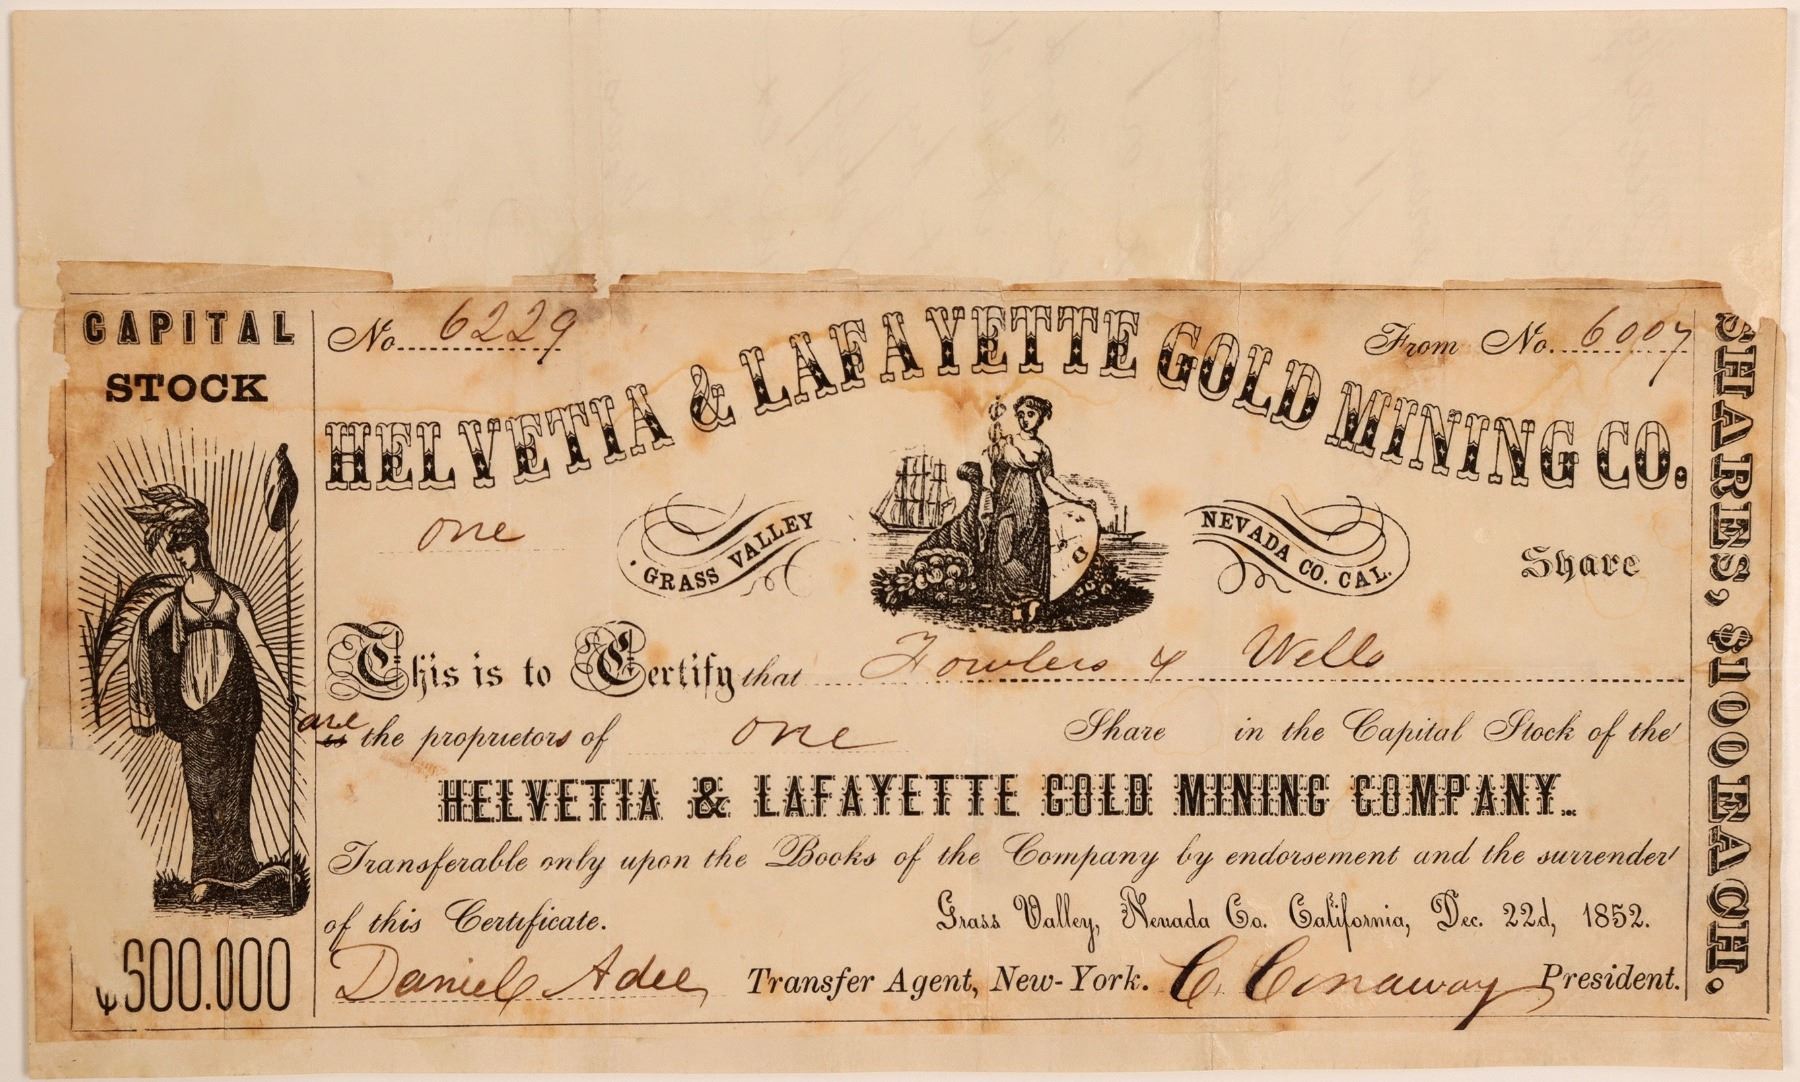 CAPITAL
STOCK
No. 6229
From No. 6007
HELVETIA & LAFAYETTE GOLD MINING CO.
one
GRASS VALLEY
NEVADA CO. CAL.
Share
This is to Certify that Fowlers & Wells
are the proprietors of one Share in the Capital Stock of the
HELVETIA & LAFAYETTE GOLD MINING COMPANY.
Transferable only upon the Books of the Company by endorsement and the surrender
of this Certificate. Grass Valley, Nevada Co. California, Dec. 22d, 1852.
Daniel Adee, Transfer Agent, New-York. C. Conaway President.
SHARES, $100 EACH.